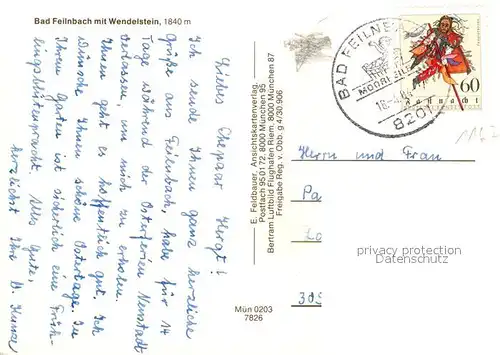 Bad Feilnbach mit Wendelstein, 1840 m
Liebes Ehepaar Hergt!
Ich sende Ihnen ganz herzliche
Grüße aus Feilnbach, habe für 14
Tage während der Osterferien Neustadt
verlassen, um mich zu erholen.
Ihnen geht es hoffentlich gut. Ich
wünsche Ihnen schöne Ostertage. In
Ihrem Garten ist sicherlich eine Früh-
lingsblütenpracht. Alles Gute,
herzlichst Ihr D. Kunze
E. Feldbauer, Ansichtskartenverlag,
Postfach 95 01 72, 8000 München 95
Bertram Luftbild Flughafen Riem, 8000 München 87
Freigabe Reg. v. Obb. g 4/30.906
Mün 0203
7826
BAD FEILNB
8201
60
Fasnacht
Herrn und Frau
Pa
305
privacy protection
Datenschutz